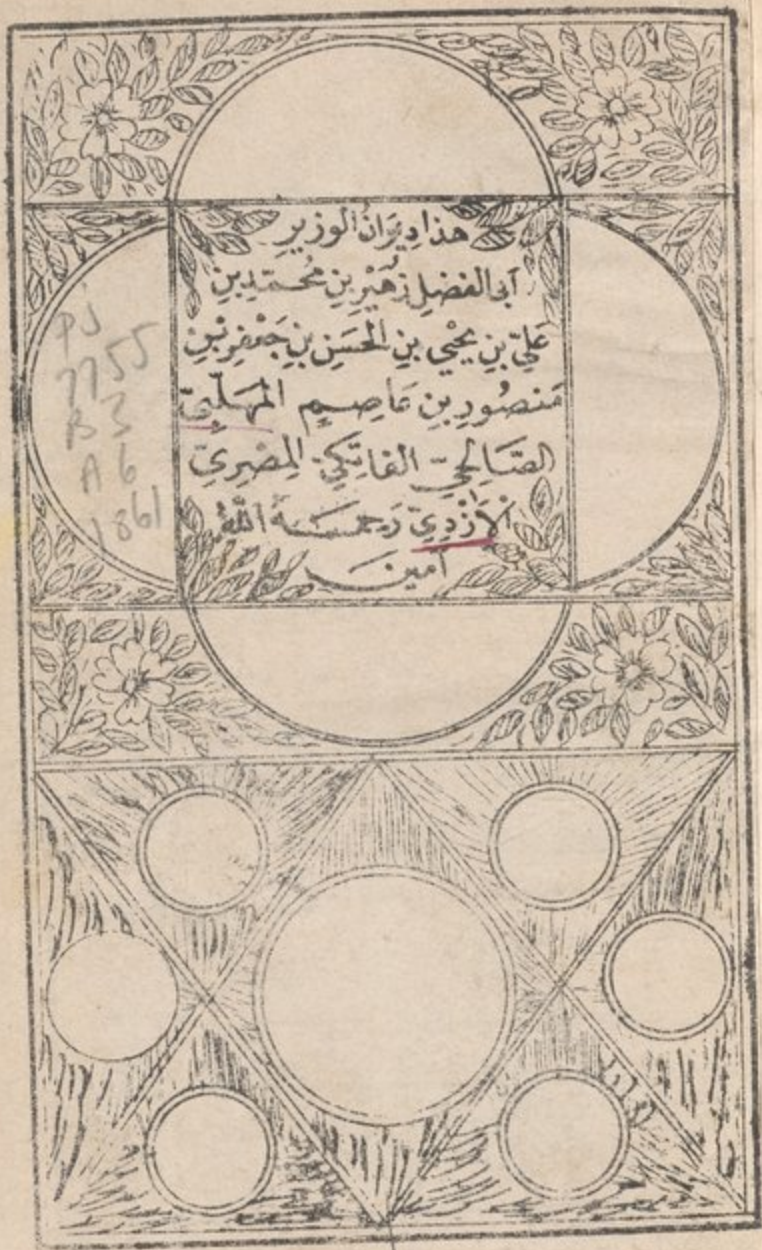 هذا دِيوَانُ الوزيرِ
اَبى الفضلِ زُهَيْرِ بنِ مُحَمَّدِ بنِ
عَلِيّ بنِ يحيٰي بنِ الحَسَنِ بنِ جَعْفَرِ بْنِ
مَنصُورِ بنِ عَاصِمٍ المُهَلَّبِيّ
الصَّالِحِيّ الفاتِكِيّ المِصْرِيّ
الاَزْدِيّ رَحِمَهُ اللّٰهُ
آمين
PJ
7755
B3
A6
1861